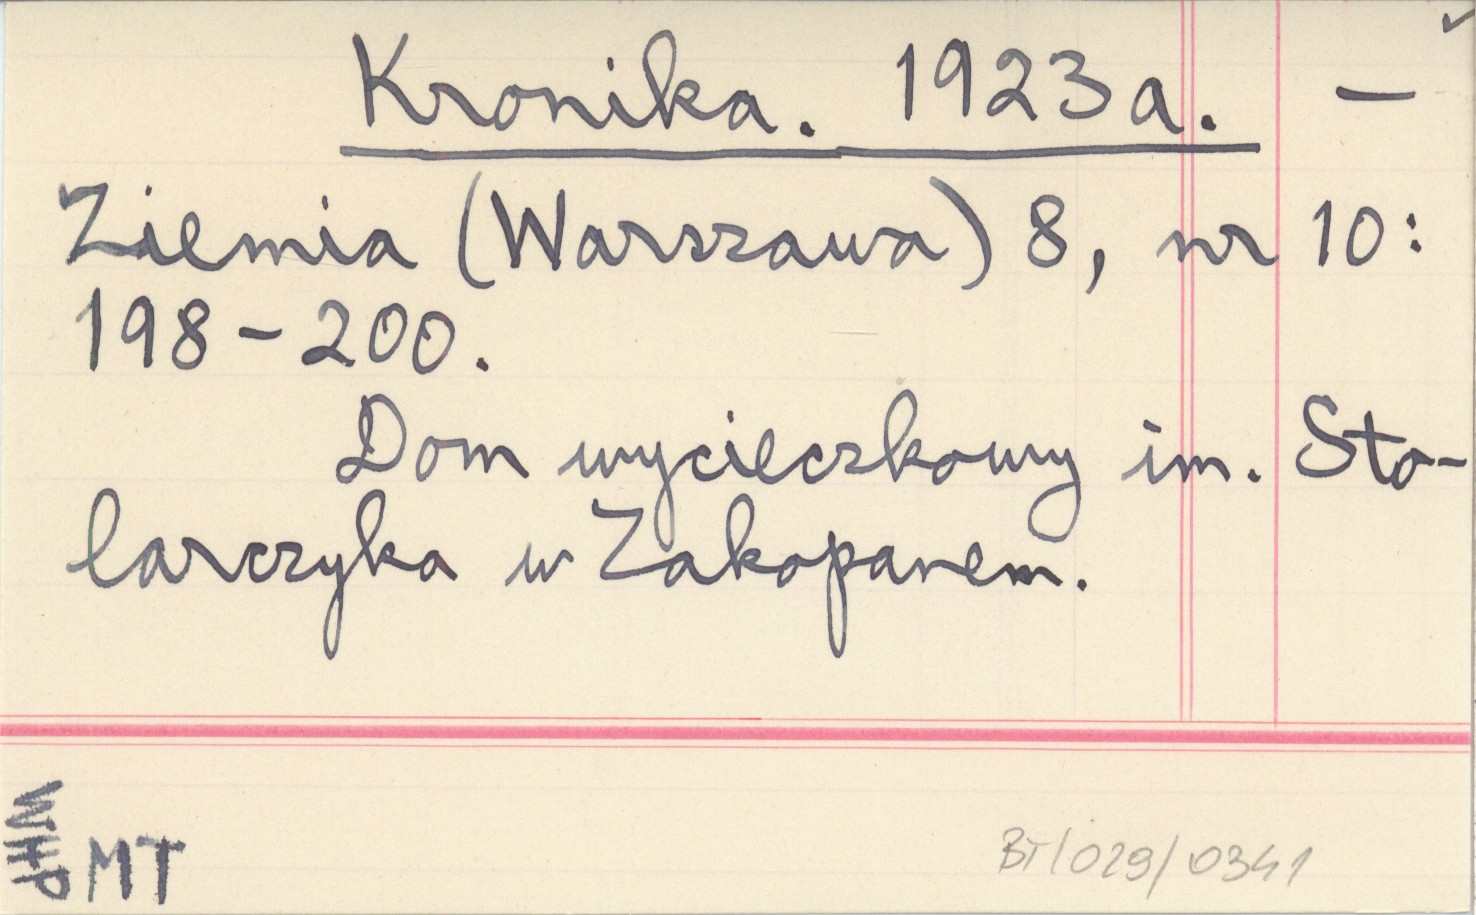 Kronika. 1923a. —
Ziemia (Warszawa) 8, nr 10:
198-200.
Dom wycieczkowy im. Sto-
larczyka w Zakopanem.
WHP
MT
BT/029/0341